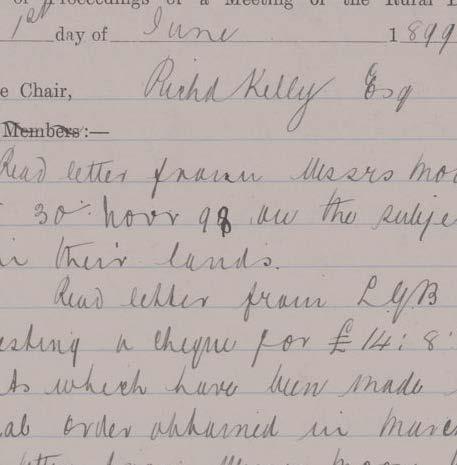 of Proceedings of a Meeting of the Rural
1st day of June 1899
e Chair, Richd Kelly Esq
Members:—
Read letter from Messrs Moo
30th Novr 98 on the subje
in their lands.
Read letter from LGB
esting a cheque for £14:8:
ts which have been made
al order obtained in March
letter from Messrs